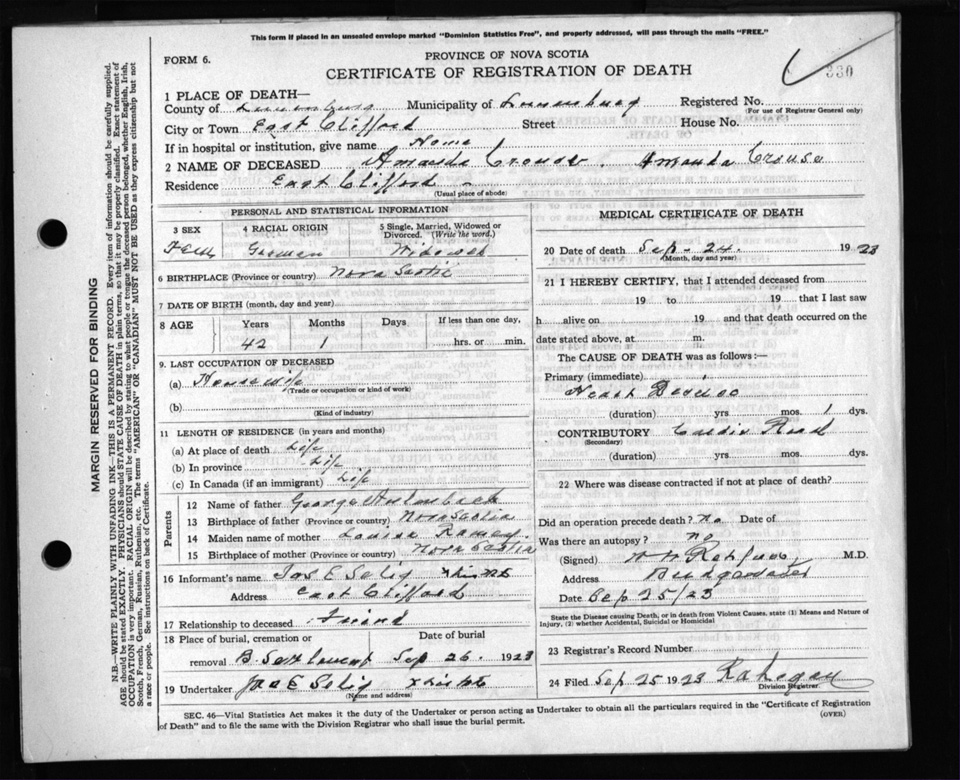 This form if placed in an unsealed envelope marked "Dominion Statistics Free", and properly addressed, will pass through the mails "FREE."
FORM 6.
PROVINCE OF NOVA SCOTIA
CERTIFICATE OF REGISTRATION OF DEATH
330
1 PLACE OF DEATH—
County of Lunenburg Municipality of Lunenburg Registered No.
(For use of Registrar General only)
City or Town East Clifford Street House No.
If in hospital or institution, give name Home
2 NAME OF DECEASED Amanda Crouse. Amanda Crouse
Residence East Clifford
(Usual place of abode)
PERSONAL AND STATISTICAL INFORMATION
3 SEX 4 RACIAL ORIGIN 5 Single, Married, Widowed or Divorced. (Write the word.)
Fem German Widowed
6 BIRTHPLACE (Province or country) Nova Scotia
7 DATE OF BIRTH (month, day and year)
8 AGE Years Months Days If less than one day,
42 1 hrs. or min.
9. LAST OCCUPATION OF DECEASED
(a) Housewife
(Trade or occupation or kind of work)
(b)
(Kind of industry)
11 LENGTH OF RESIDENCE (in years and months)
(a) At place of death Life
(b) In province Life
(c) In Canada (if an immigrant) Life
Parents
12 Name of father George
13 Birthplace of father (Province or country) Nova Scotia
14 Maiden name of mother Louisa Ramey
15 Birthplace of mother (Province or country) Nova Scotia
16 Informant's name Jas E Selig
Address East Clifford
17 Relationship to deceased Friend
18 Place of burial, cremation or removal Date of burial
Sep 26. 1923
19 Undertaker Jas E Selig
(Name and address)
MEDICAL CERTIFICATE OF DEATH
20 Date of death Sep - 24. 1923
(Month, day and year)
21 I HEREBY CERTIFY, that I attended deceased from
19 to 19 that I last saw
h alive on 19 and that death occurred on the
date stated above, at m.
The CAUSE OF DEATH was as follows:—
Primary (immediate)
Heart Disease
(duration) yrs. mos. 1 dys.
CONTRIBUTORY
(Secondary)
(duration) yrs. mos. dys.
22 Where was disease contracted if not at place of death?
Did an operation precede death? no Date of
Was there an autopsy? no
(Signed) M.D.
Address Bridgewater
Date Sep 25/23
State the Disease causing Death, or in death from Violent Causes, state (1) Means and Nature of Injury, (2) whether Accidental, Suicidal or Homicidal
23 Registrar's Record Number
24 Filed Sep 25 1923
Division Registrar.
SEC. 46—Vital Statistics Act makes it the duty of the Undertaker or person acting as Undertaker to obtain all the particulars required in the "Certificate of Registration
of Death" and to file the same with the Division Registrar who shall issue the burial permit.
(OVER)
MARGIN RESERVED FOR BINDING
N.B.—WRITE PLAINLY WITH UNFADING INK—THIS IS A PERMANENT RECORD. Every item of information should be carefully supplied.
AGE should be stated EXACTLY. PHYSICIANS should STATE CAUSE OF DEATH in plain terms, so that it may be properly classified. Exact statement of
OCCUPATION is very important. RACIAL ORIGIN will be described by stating to what people or tongue the deceased person belonged, whether English, Irish,
Scotch, French, German, Russian, Ruthenian, etc. The terms "AMERICAN" OR "CANADIAN" MUST NOT BE USED as they express citizenship but not
a race or people. See instructions on back of Certificate.